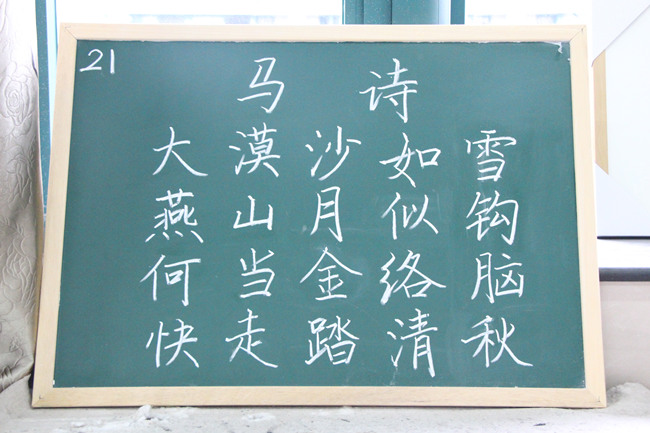 21
马诗
大漠沙如雪
燕山月似钩
何当金络脑
快走踏清秋